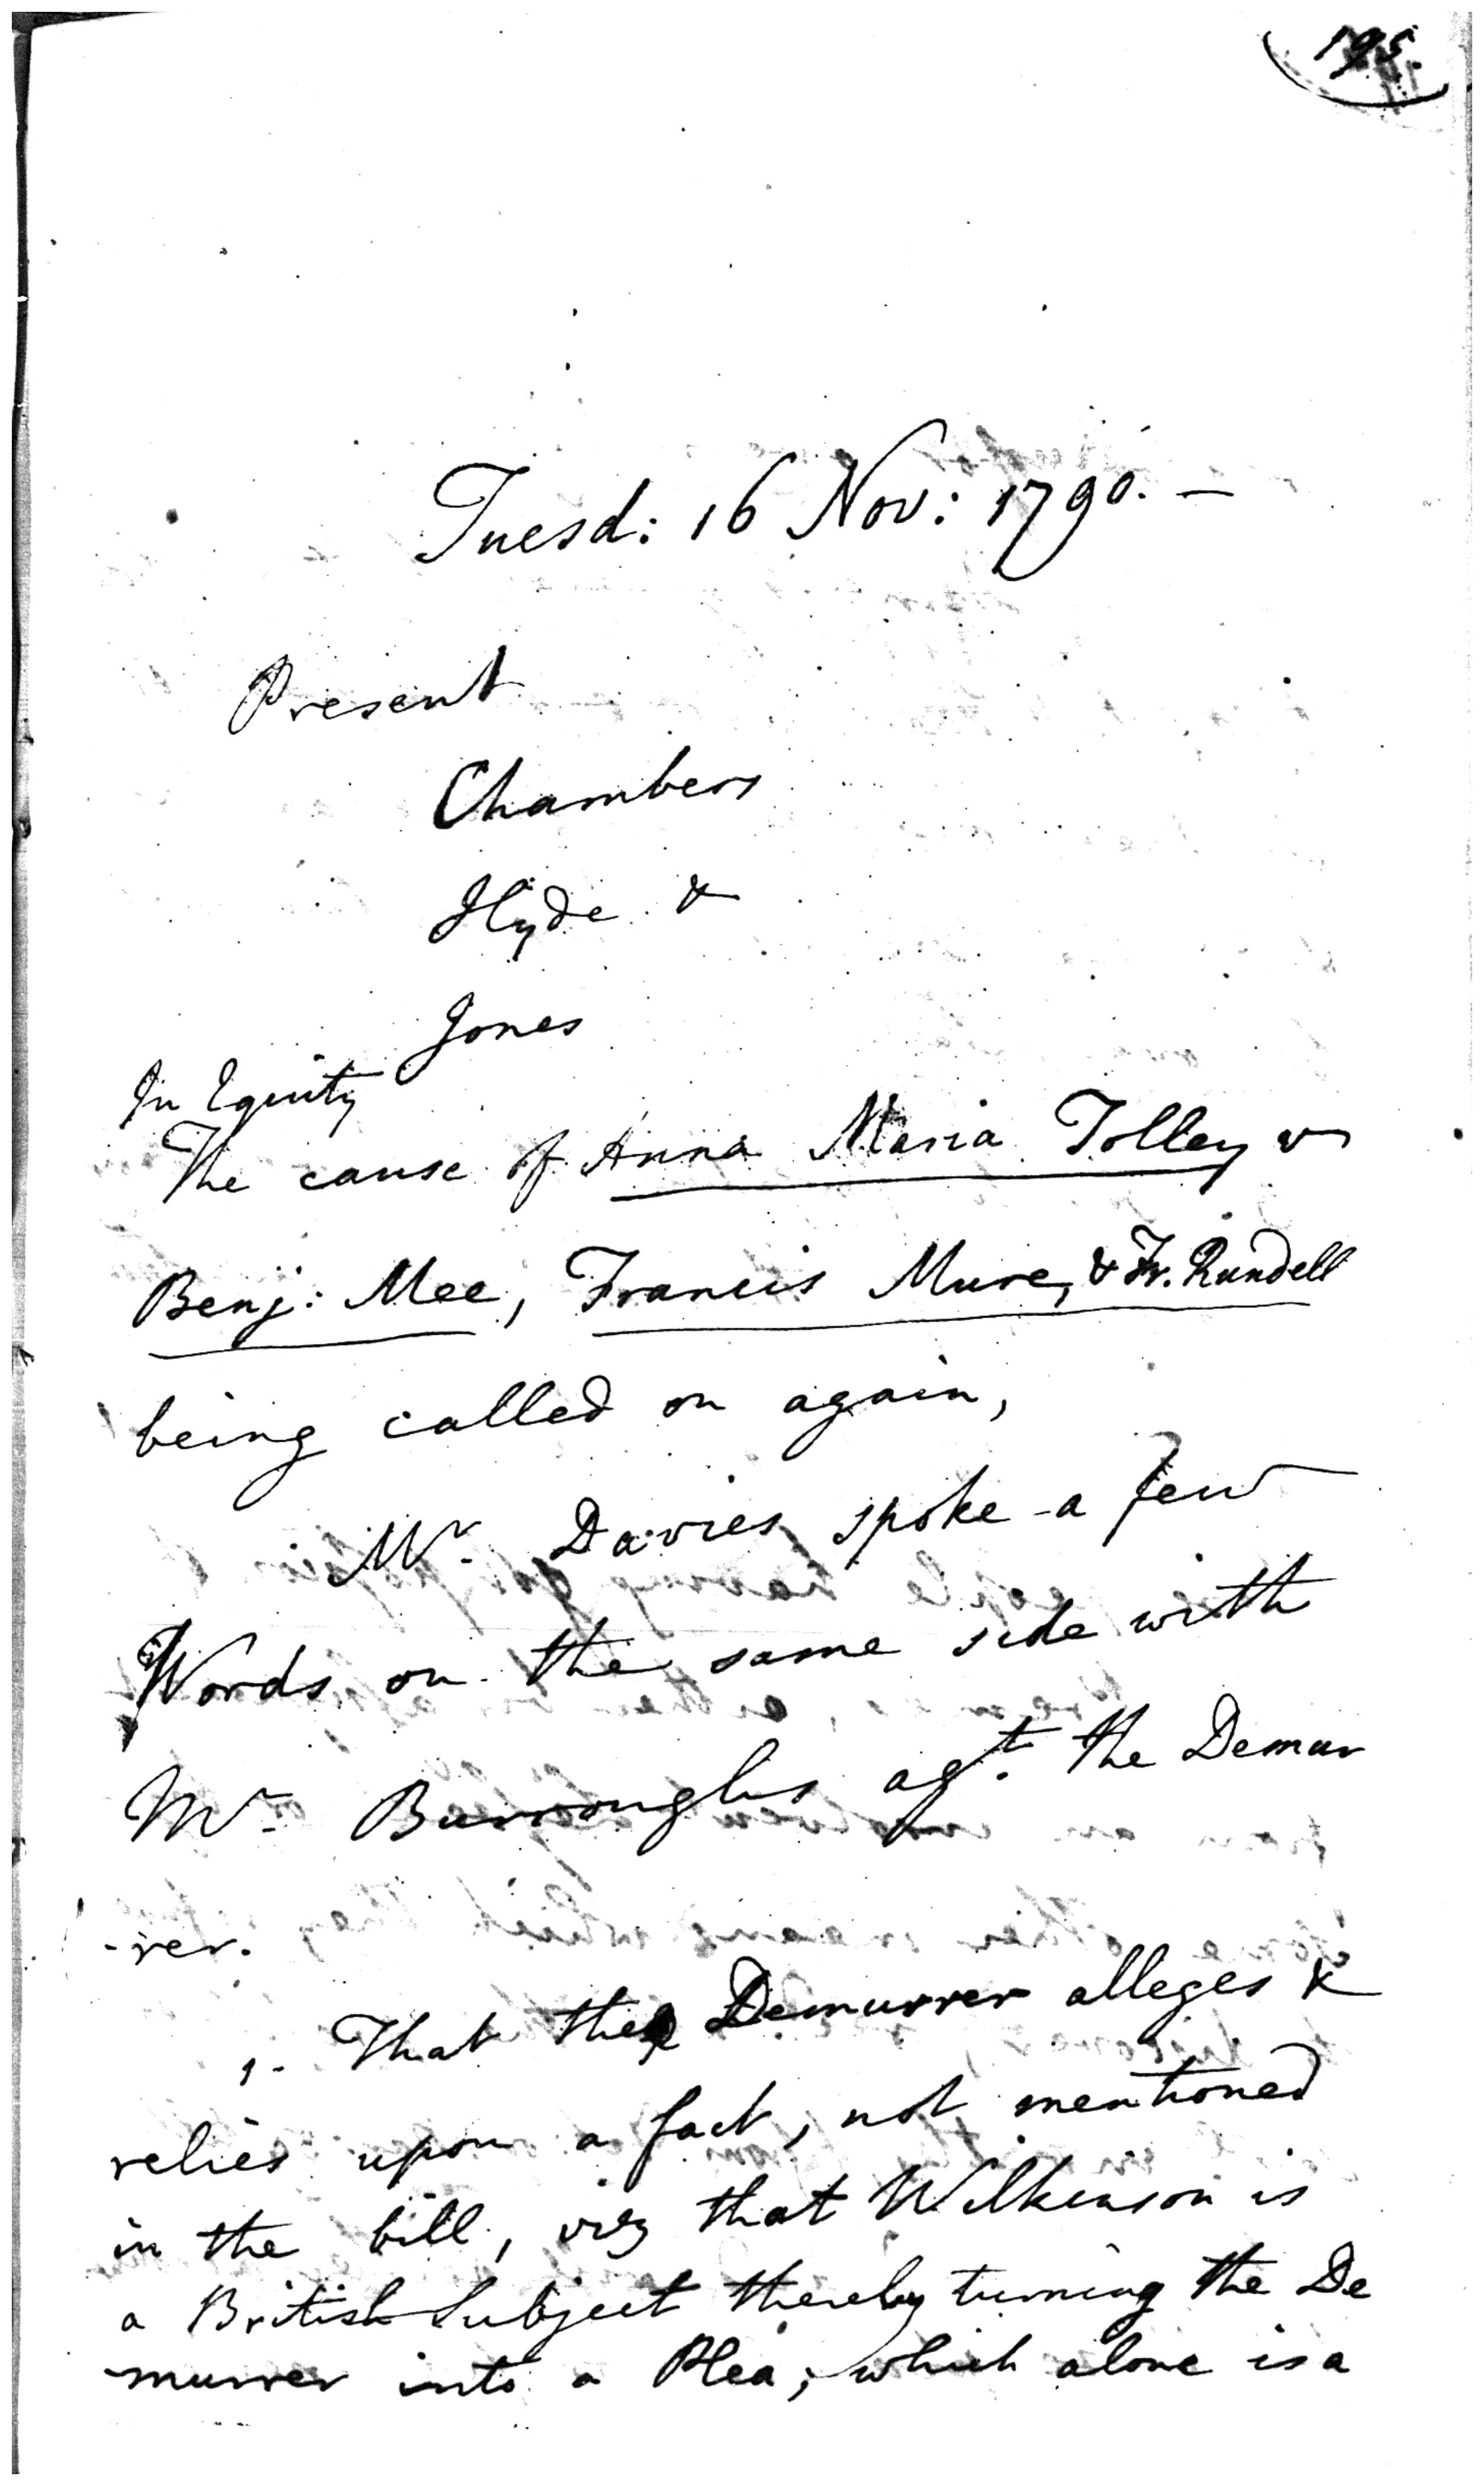 195.
Tuesd: 16 Nov: 1790. —
Present
Chambers
Hyde &
Jones
In Equity
The cause of Anna Maria Tolley vs
Benj: Mee, Francis Mure, & Fr. Rundell
being called on again,
Mr. Davies spoke a few
Words on the same side with
Mr. Burroughs agt. the Demur
-rer.
1. That the Demurrer alleges &
relies upon a fact, not mentioned
in the bill, viz that Wilkinson is
a British Subject thereby turning the De
-murrer into a Plea; which alone is a